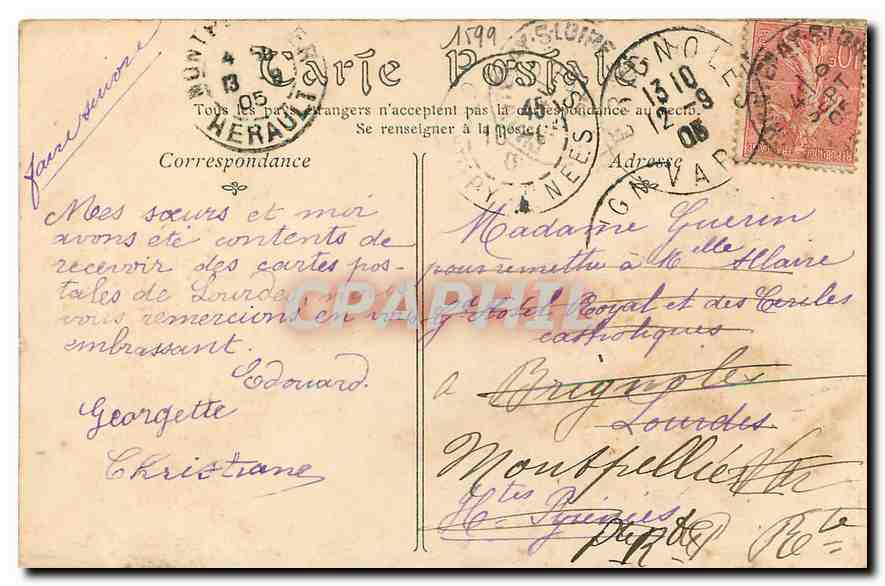 faire suivre
1599
Carte Postale
Tous les pays étrangers n'acceptent pas la correspondance au recto.
Se renseigner à la poste
Correspondance
Adresse
Mes sœurs et moi
avons été contents de
recevoir des cartes pos-
tales de Lourdes
vous remercions en
embrassant.
Edouard.
Georgette
Christiane
Madame Guerin
pour remettre à Melle Allaire
Gd Hôtel Royal et des Cercles
catholiques
a Brignoles
Lourdes
Montpellier Var
Htes Pyrénées
Rte
HERAULT
4
13
05
BRIGNOLES
1310
12 -9
05
VAR
45
PYRÉNÉES
CPAPHIL